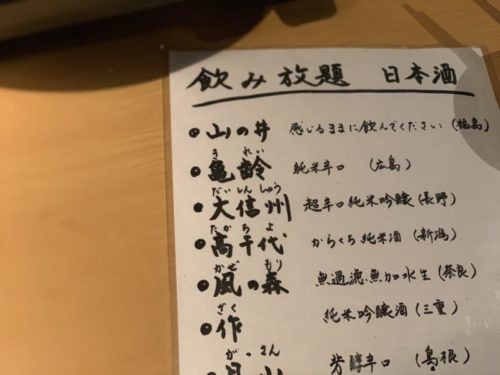 飲み放題 日本酒
●山の井 感じるままに飲んでください(福島)
きれい
●亀齢 純米辛口 (広島)
だいしんしゅう
●大信州 超辛口純米吟醸(長野)
たかちよ
●高千代 からくち純米酒(新潟)
かぜ もり
●風の森 無過濾無加水生(奈良)
ざく
●作 純米吟醸酒(三重)
がっさん
●月山 芳醇辛口 (島根)